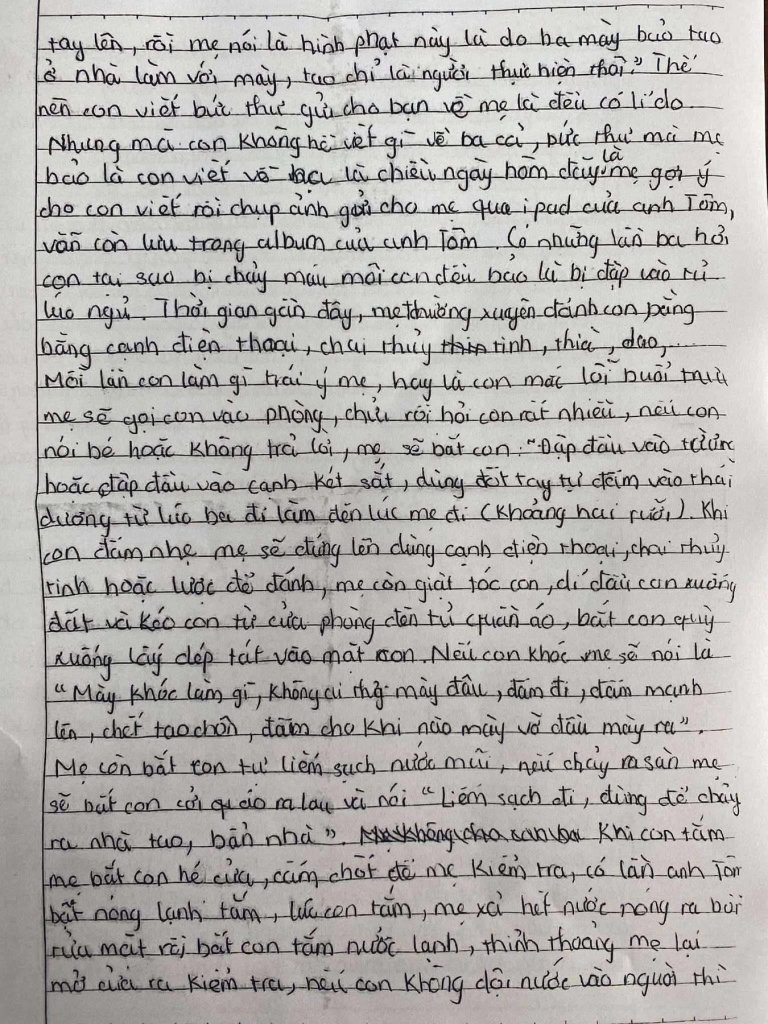 tay lên, rồi mẹ nói là hình phạt này là do ba mày bảo tao
ở nhà làm với mày, tao chỉ là người thực hiện thôi." Thế
nên con viết bức thư gửi cho bạn về mẹ là đều có lí do.
Nhưng mà con không hề viết gì về ba cả, bức thư mà mẹ
bảo là con viết về là chiều ngày hôm đấy là mẹ gợi ý
cho con viết rồi chụp ảnh gửi cho mẹ qua ipad của anh Tôm,
vẫn còn lưu trong album của anh Tôm. Có những lần ba hỏi
con tại sao bị chảy máu môi con đều bảo là bị đập vào tủ
lúc ngủ. Thời gian gần đây, mẹ thường xuyên đánh con bằng
bằng cạnh điện thoại, chai thủy tinh, thìa, dao,...
Mỗi lần con làm gì trái ý mẹ, hay là con mắc lỗi buổi trưa
mẹ sẽ gọi con vào phòng, chửi rồi hỏi con rất nhiều, nếu con
nói bé hoặc không trả lời, mẹ sẽ bắt con: "Đập đầu vào tường
hoặc đập đầu vào cạnh két sắt, dùng đốt tay tự đấm vào thái
dương từ lúc ba đi làm đến lúc mẹ đi (khoảng hai rưỡi). Khi
con đấm nhẹ mẹ sẽ đứng lên dùng cạnh điện thoại, chai thủy
tinh hoặc lược để đánh, mẹ còn giật tóc con, dí đầu con xuống
đất và kéo con từ cửa phòng đến tủ quần áo, bắt con quỳ
xuống lấy dép tát vào mặt con. Nếu con khóc mẹ sẽ nói là
"Mày khóc làm gì, không ai thờ mày đâu, đấm đi, đấm mạnh
lên, chết tao chôn, đấm cho khi nào mày vỡ đầu mày ra".
Mẹ còn bắt con tự liếm sạch nước mũi, nếu chảy ra sàn mẹ
sẽ bắt con cởi quần áo ra lau và nói "Liếm sạch đi, đừng để chảy
ra nhà tao, bẩn nhà". Khi con tắm
mẹ bắt con hé cửa, cấm chốt để mẹ kiểm tra, có lần anh Tôm
bật nóng lạnh tắm, lúc con tắm, mẹ xả hết nước nóng ra bồn
rửa mặt rồi bắt con tắm nước lạnh, thỉnh thoảng mẹ lại
mở cửa ra kiểm tra, nếu con không dội nước vào người thì